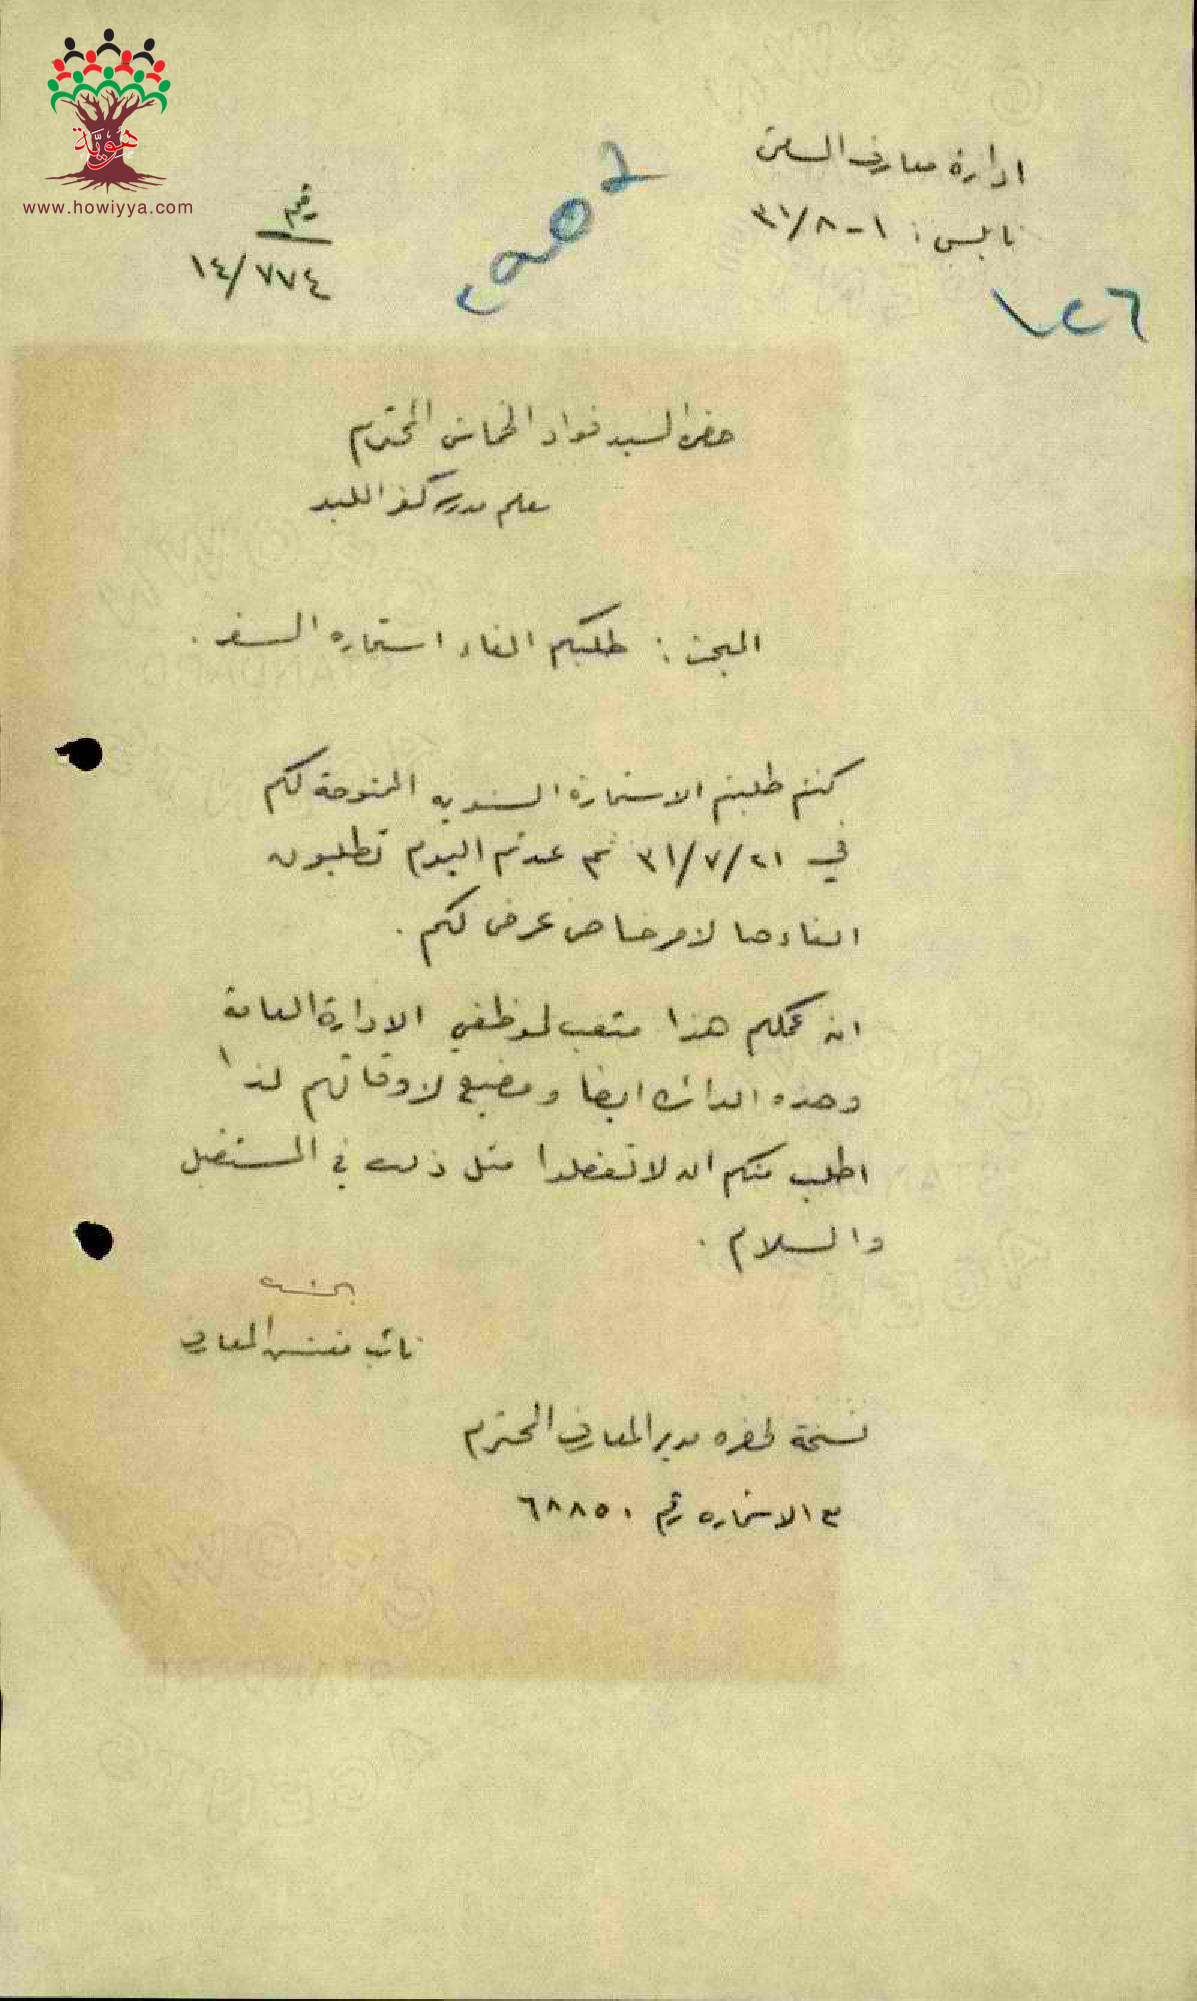 هوية
www.howiyya.com
ادارة معارف السامرة
نابلس : ١-٣١/٨
رقم
١٤/٧٧٤
١٢٦
حضرة السيد فؤاد الخماش المحترم
معلم مدرسة كفر اللبد
المبحث : طلبكم الغاء استمارة السفر .
كنتم طلبتم الاستمارة السنوية الممنوحة لكم
في ٣١/٧/٢١ ثم عدتم اليوم تطلبون
الغاءها لامر خاص عرض لكم .
ان عملكم هذا متعب لموظفي الادارة العامة
وهذه الدائرة ايضا ومضيع لاوقاتهم لذا
اطلب منكم ان لا تفعلوا مثل ذلك في المستقبل
والسلام .
نائب مفتش المعارف
نسخة لحضرة مدير المعارف المحترم
مع الاستمارة رقم ٦٨٨٥٠